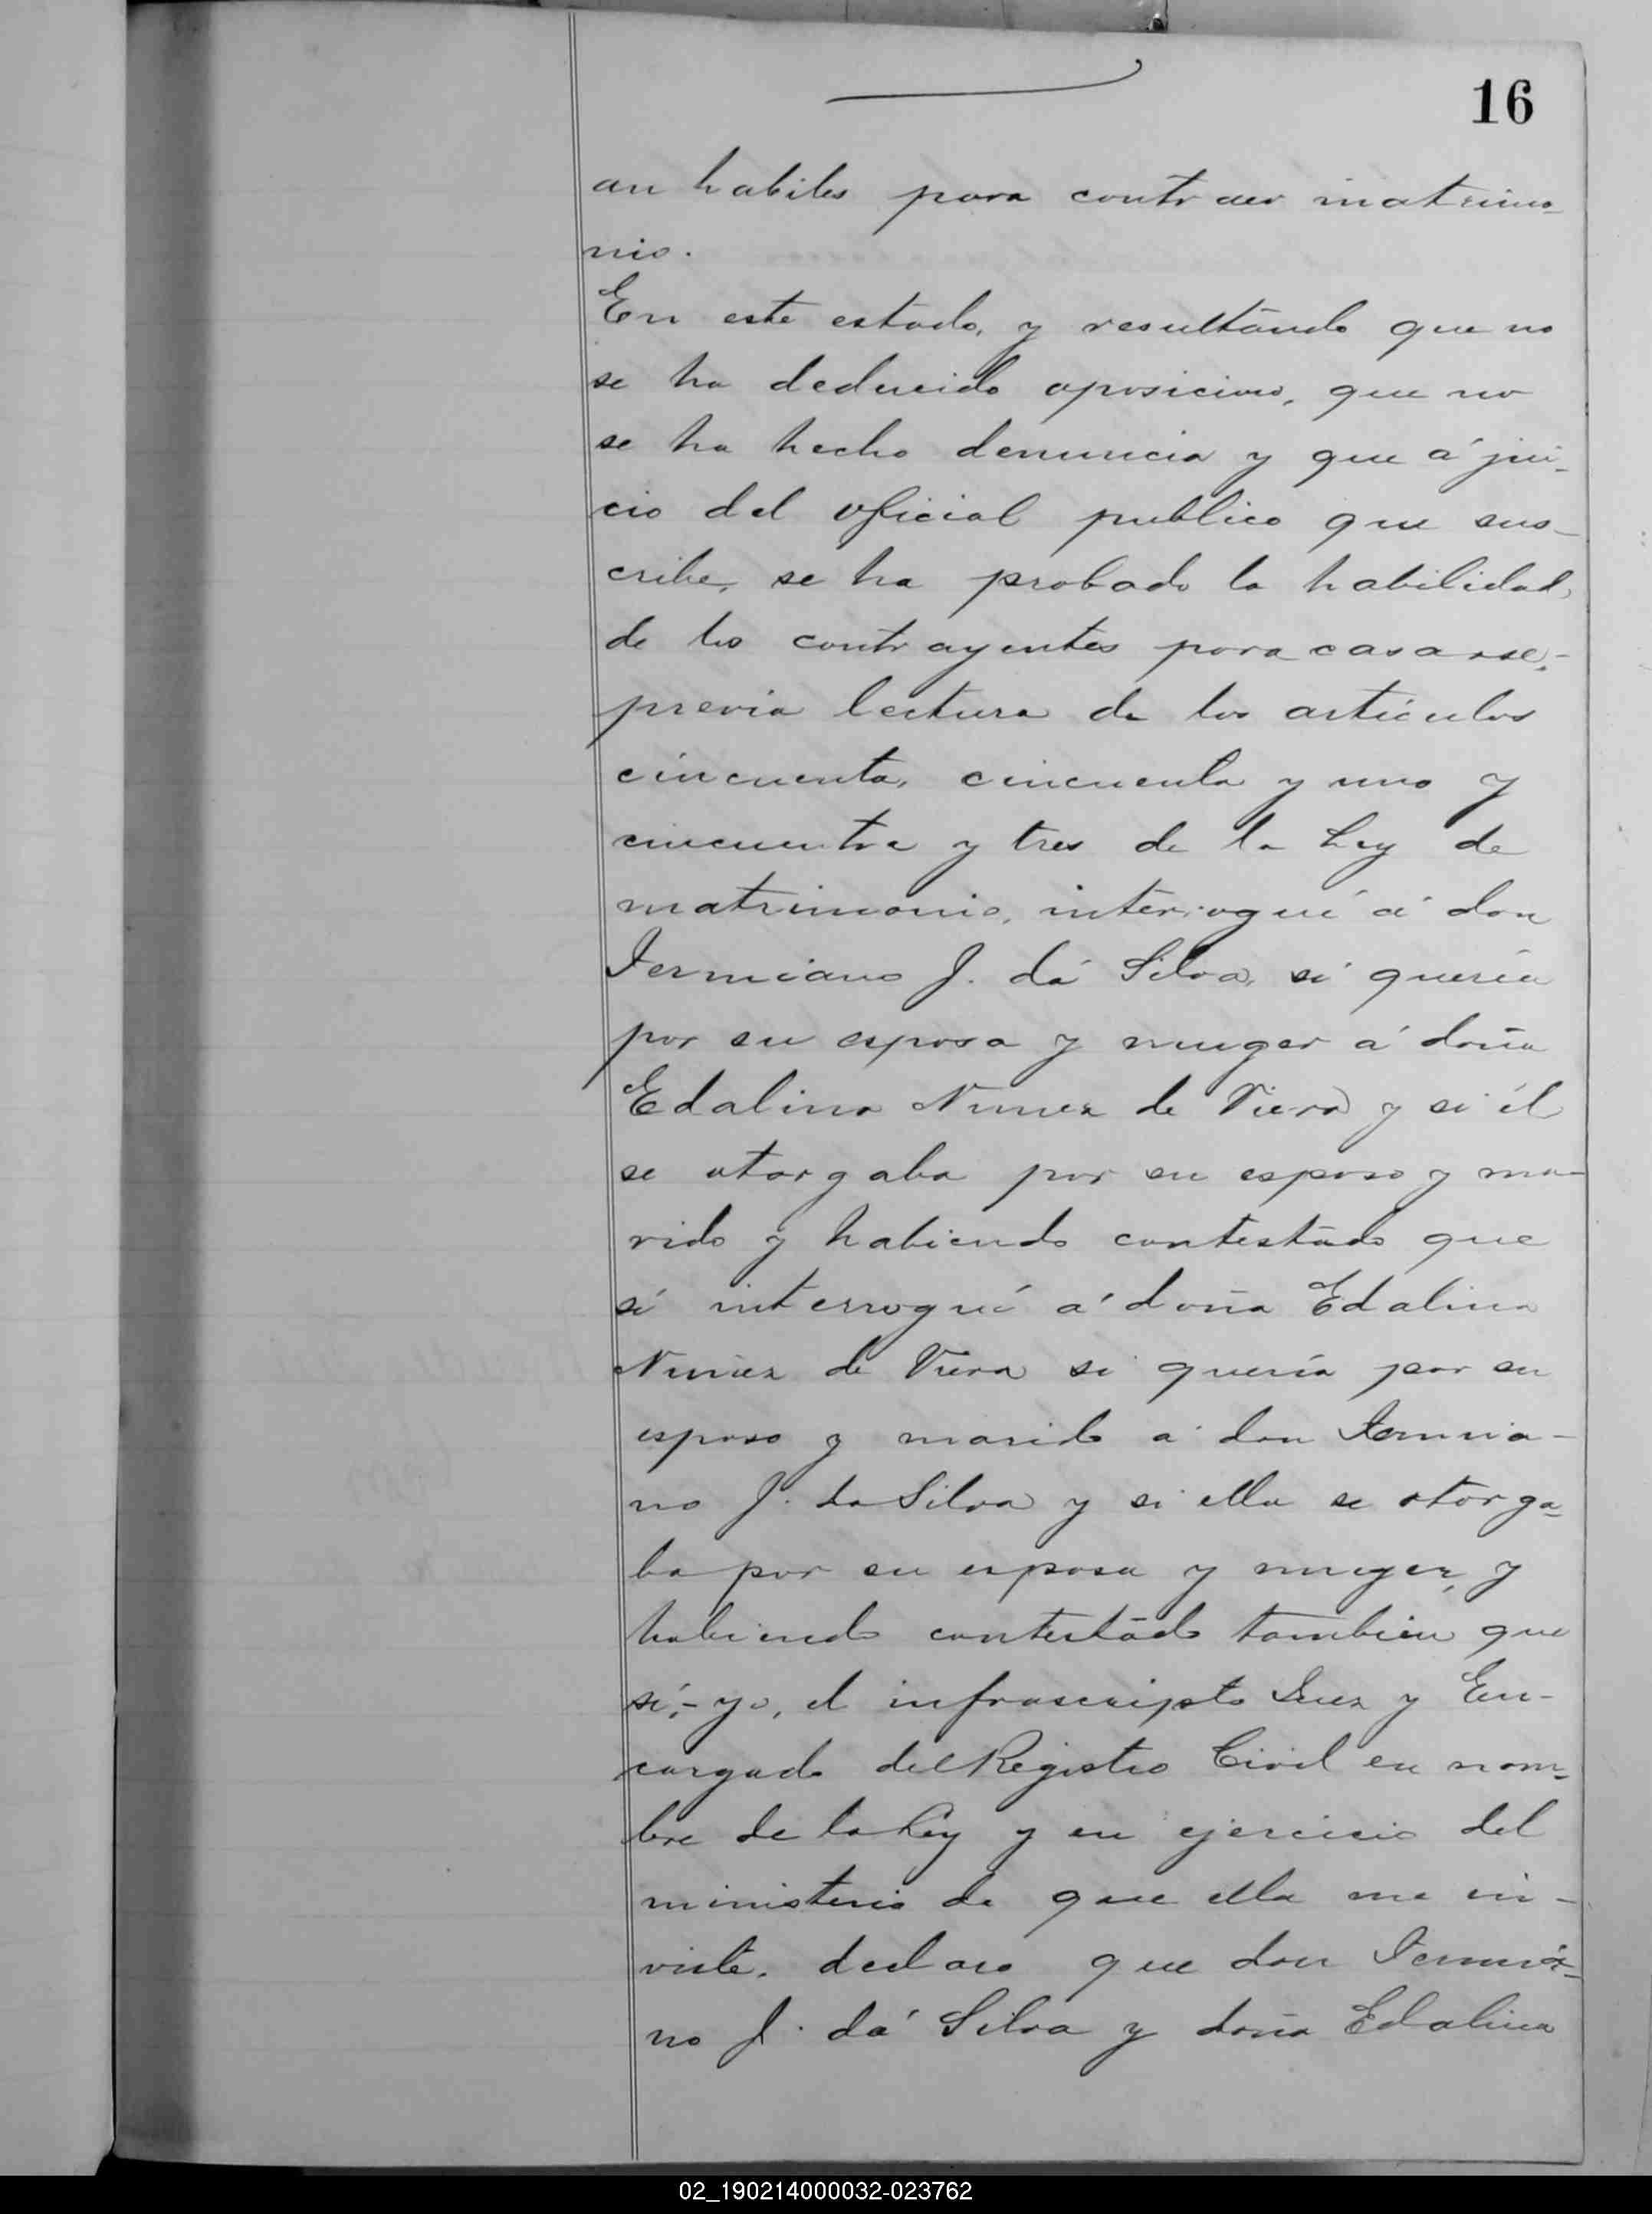 16
an habiles para contraer matrimo-
nio.
En este estado, y resultándo que no
se ha deducido oposicion, que no
se ha hecho denuncia y que á jui-
cio del oficial publico que sus-
cribe, se ha probado la habilidad
de los contrayentes para casarse,-
previa lectura de los artículos
cincuenta, cincuenta y uno y
cincuenta y tres de la Ley de
matrimonio, interrogué á don
J. dá Silva, si quería
por su esposa y muger á doña
Edalina Nuñez de Viera y si él
se otorgaba por su esposo y ma-
rido y habiendo contestádo que
sí interrogué á doña Edalina
Nuñez de Viera si quería por su
esposo y marido a don
no J. da Silva y si ella se otorga-
ba por su esposa y muger, y
habiendo contestádo tambien que
sí,- yo, el infrascripto Juez y En-
cargado del Registro Civil en nom-
bre de la Ley y en ejercicio del
ministerio de que ella me in-
viste, declaro que don
no J. dá Silva y doña Edalina
02_190214000032-023762